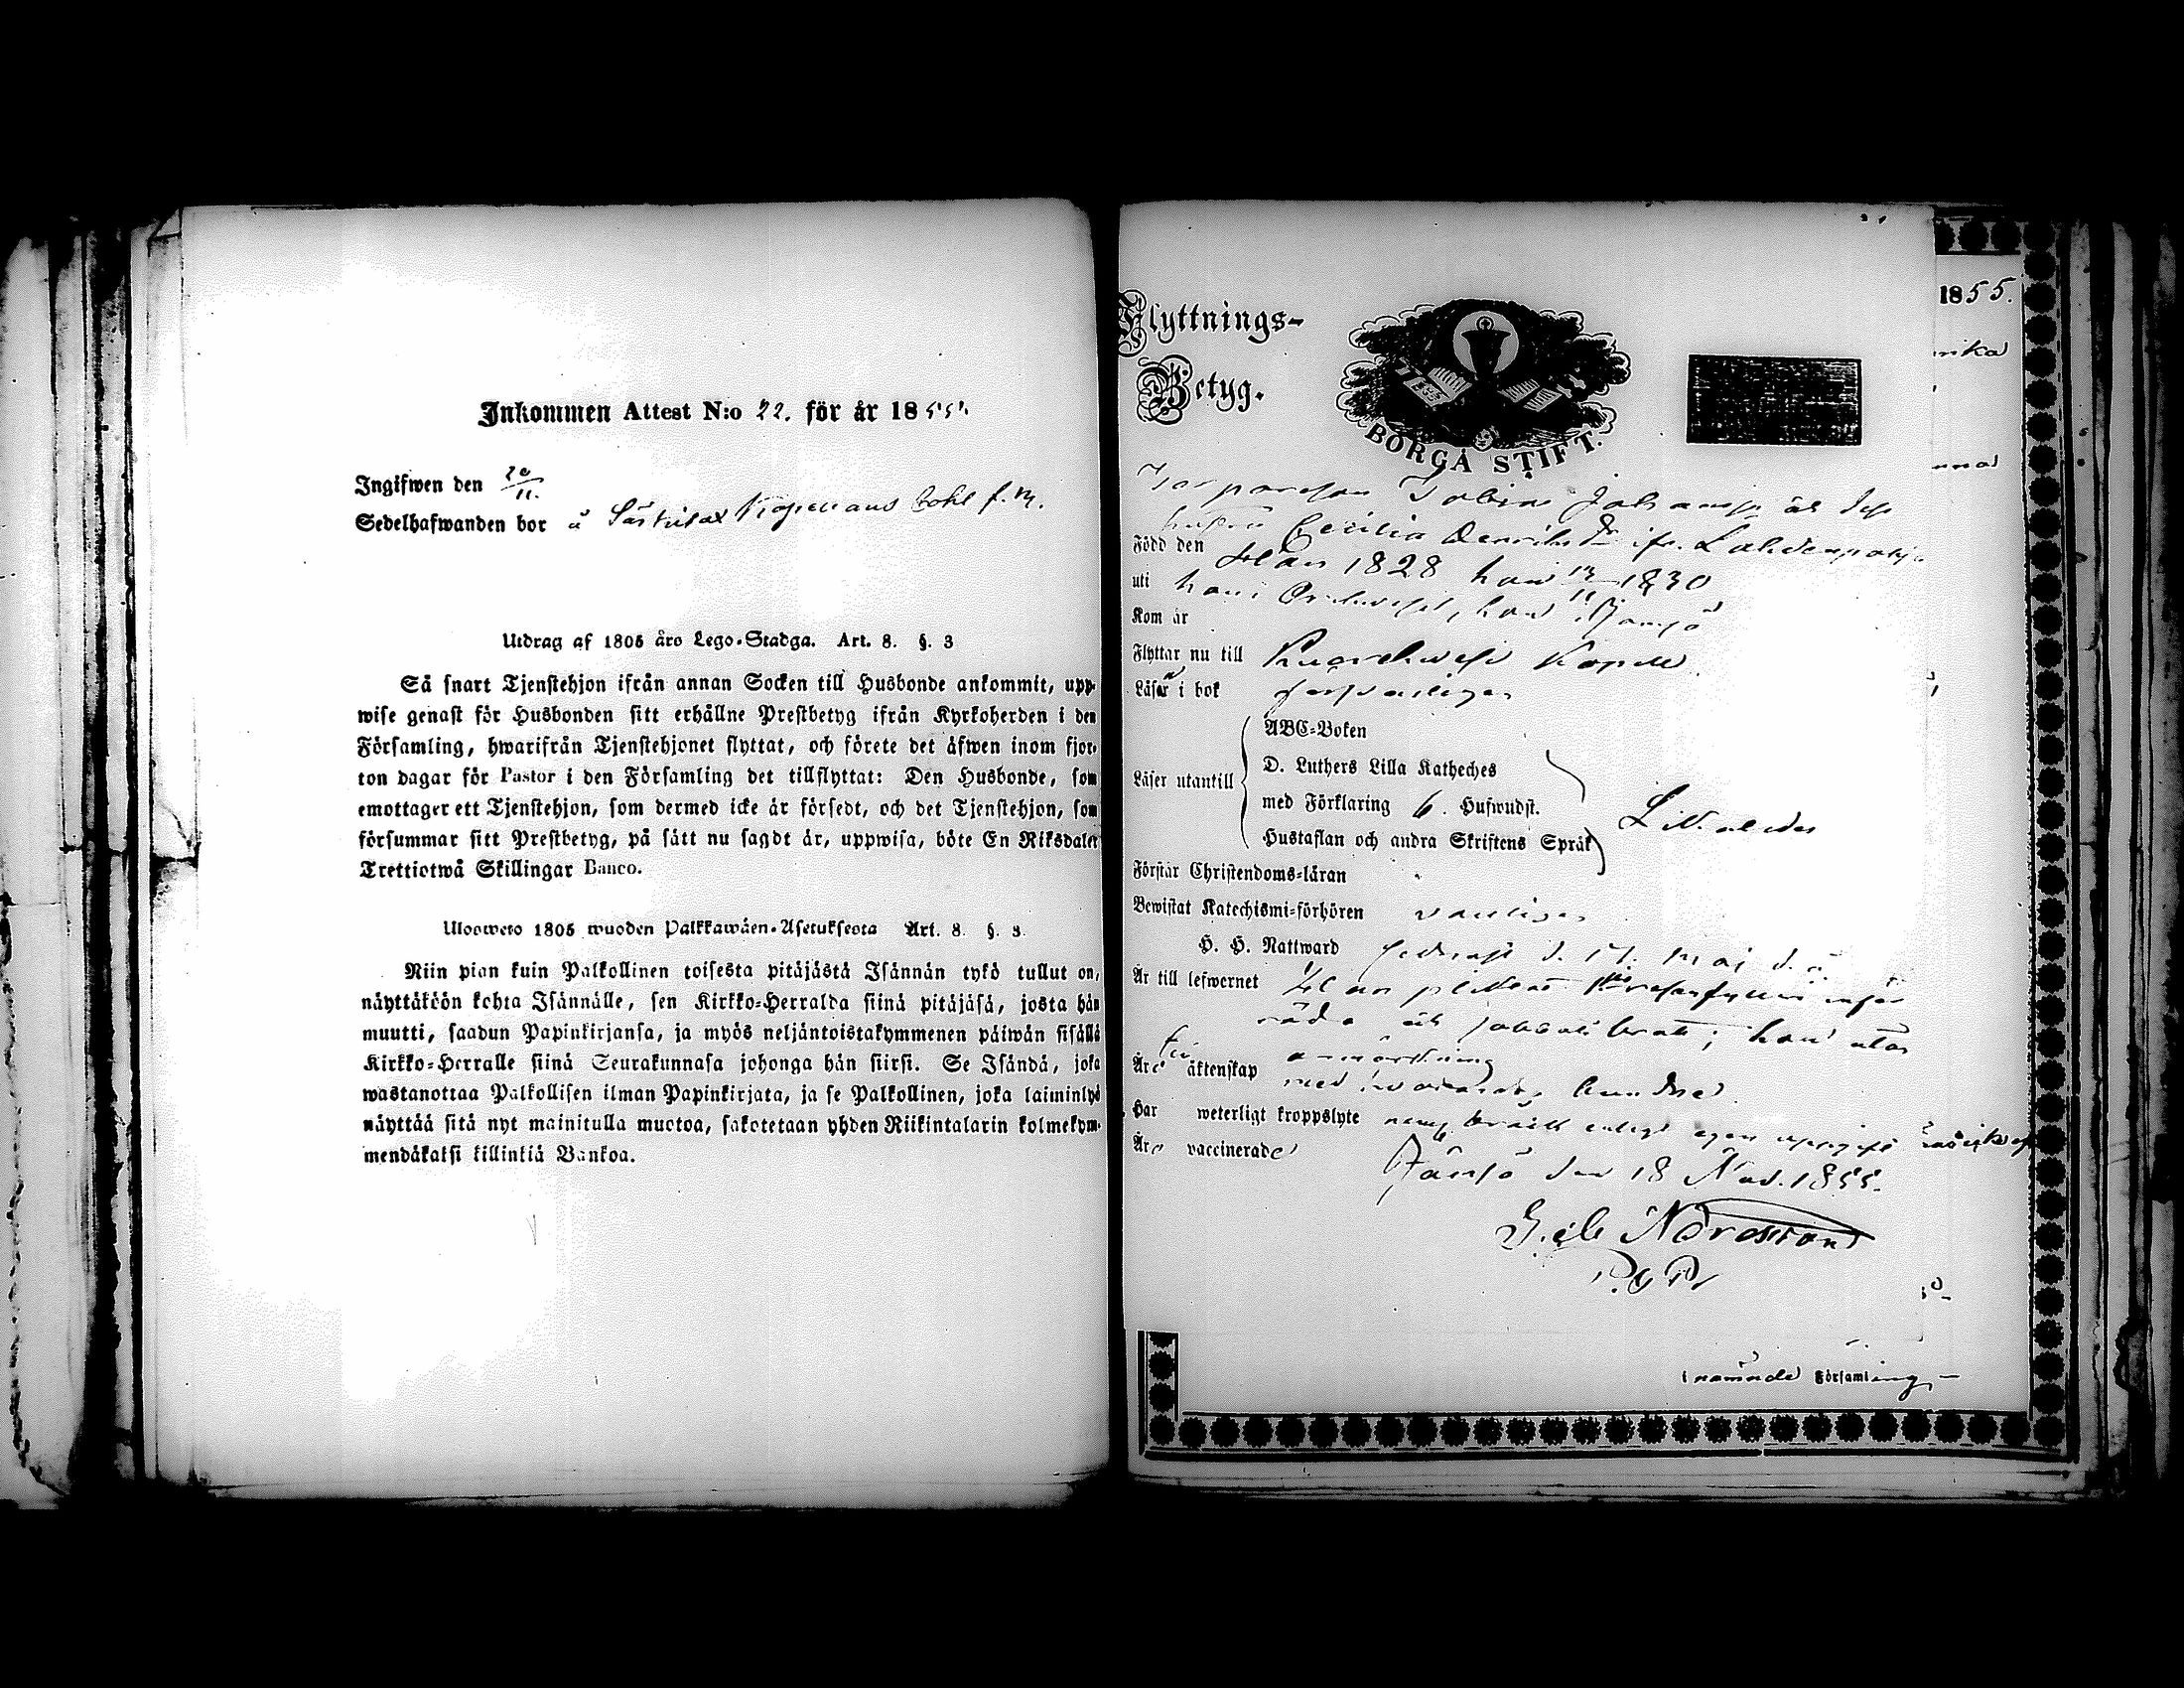 Inkommen Attest N:o 22. för år 1855.
Ingifwen den 20/11.
Sedelhafwanden bor å Särkilax Kapellans Bohl f. m.
Utdrag af 1805 års Lego-Stadga. Art. 8. §. 3
Så snart Tjenstehjon ifrån annan Socken till Husbonde ankommit, upp-
wise genast för Husbonden sitt erhållne Prestbetyg ifrån Kyrkoherden i den
Församling, hwarifrån Tjenstehjonet flyttat, och förete det äfwen inom fjor-
ton dagar för Pastor i den Församling det tillflyttat: Den Husbonde, som
emottager ett Tjenstehjon, som dermed icke är försedt, och det Tjenstehjon, som
försummar sitt Prestbetyg, på sätt nu sagdt är, uppwisa, böte En Riksdaler
Trettiotwå Skillingar Banco.
Ulosweto 1805 wuoden Palkkawäen-Asetuksesta Art. 8. §. 3.
Niin pian kuin Palkollinen toisesta pitäjästä Isännän tykö tullut on,
näyttäköön kohta Isännälle, sen Kirkko-Herralda siinä pitäjäsä, josta hän
muutti, saadun Papinkirjansa, ja myös neljäntoistakymmenen päiwän sisällä
Kirkko-Herralle siinä Seurakunnasa johonga hän siirsi. Se Isändä, joka
wastanottaa Palkollisen ilman Papinkirjata, ja se Palkollinen, joka laiminlyö
näyttää sitä nyt mainitulla muotoa, sakotetaan yhden Riikintalarin kolmekym-
mendäkaksi killinkiä Bankoa.
Flyttnings-
Betyg.
BORGÅ STIFT.
1855.
Johansson
hustru Cecilia Henriksdr ifr. Lahdenpohja
Född den Han 1828 hon 13/11 1830
uti han i hon i Jämsä
Kom år
Flyttar nu till Kuorehwesi Kapell
Läser i bok försvarligen
ABC-Boken
D. Luthers Lilla Katheches
Läser utantill
med Förklaring 6. Hufwudst.
Hustaflan och andra Skriftens Språk
Likaledes
Förstår Christendoms-läran
Bewistat Katechismi-förhören vanligen
H. H. Nattward sednast d. 17. Maj d. å.
Är till lefwernet Han
hon utan
anmärkning
Äre i äktenskap med hwarandra
Har weterligt kroppslyte
Äre vaccinerade
Jämsä den 18 Nov. 1855.
Nordstrand
i nämnde Församling,